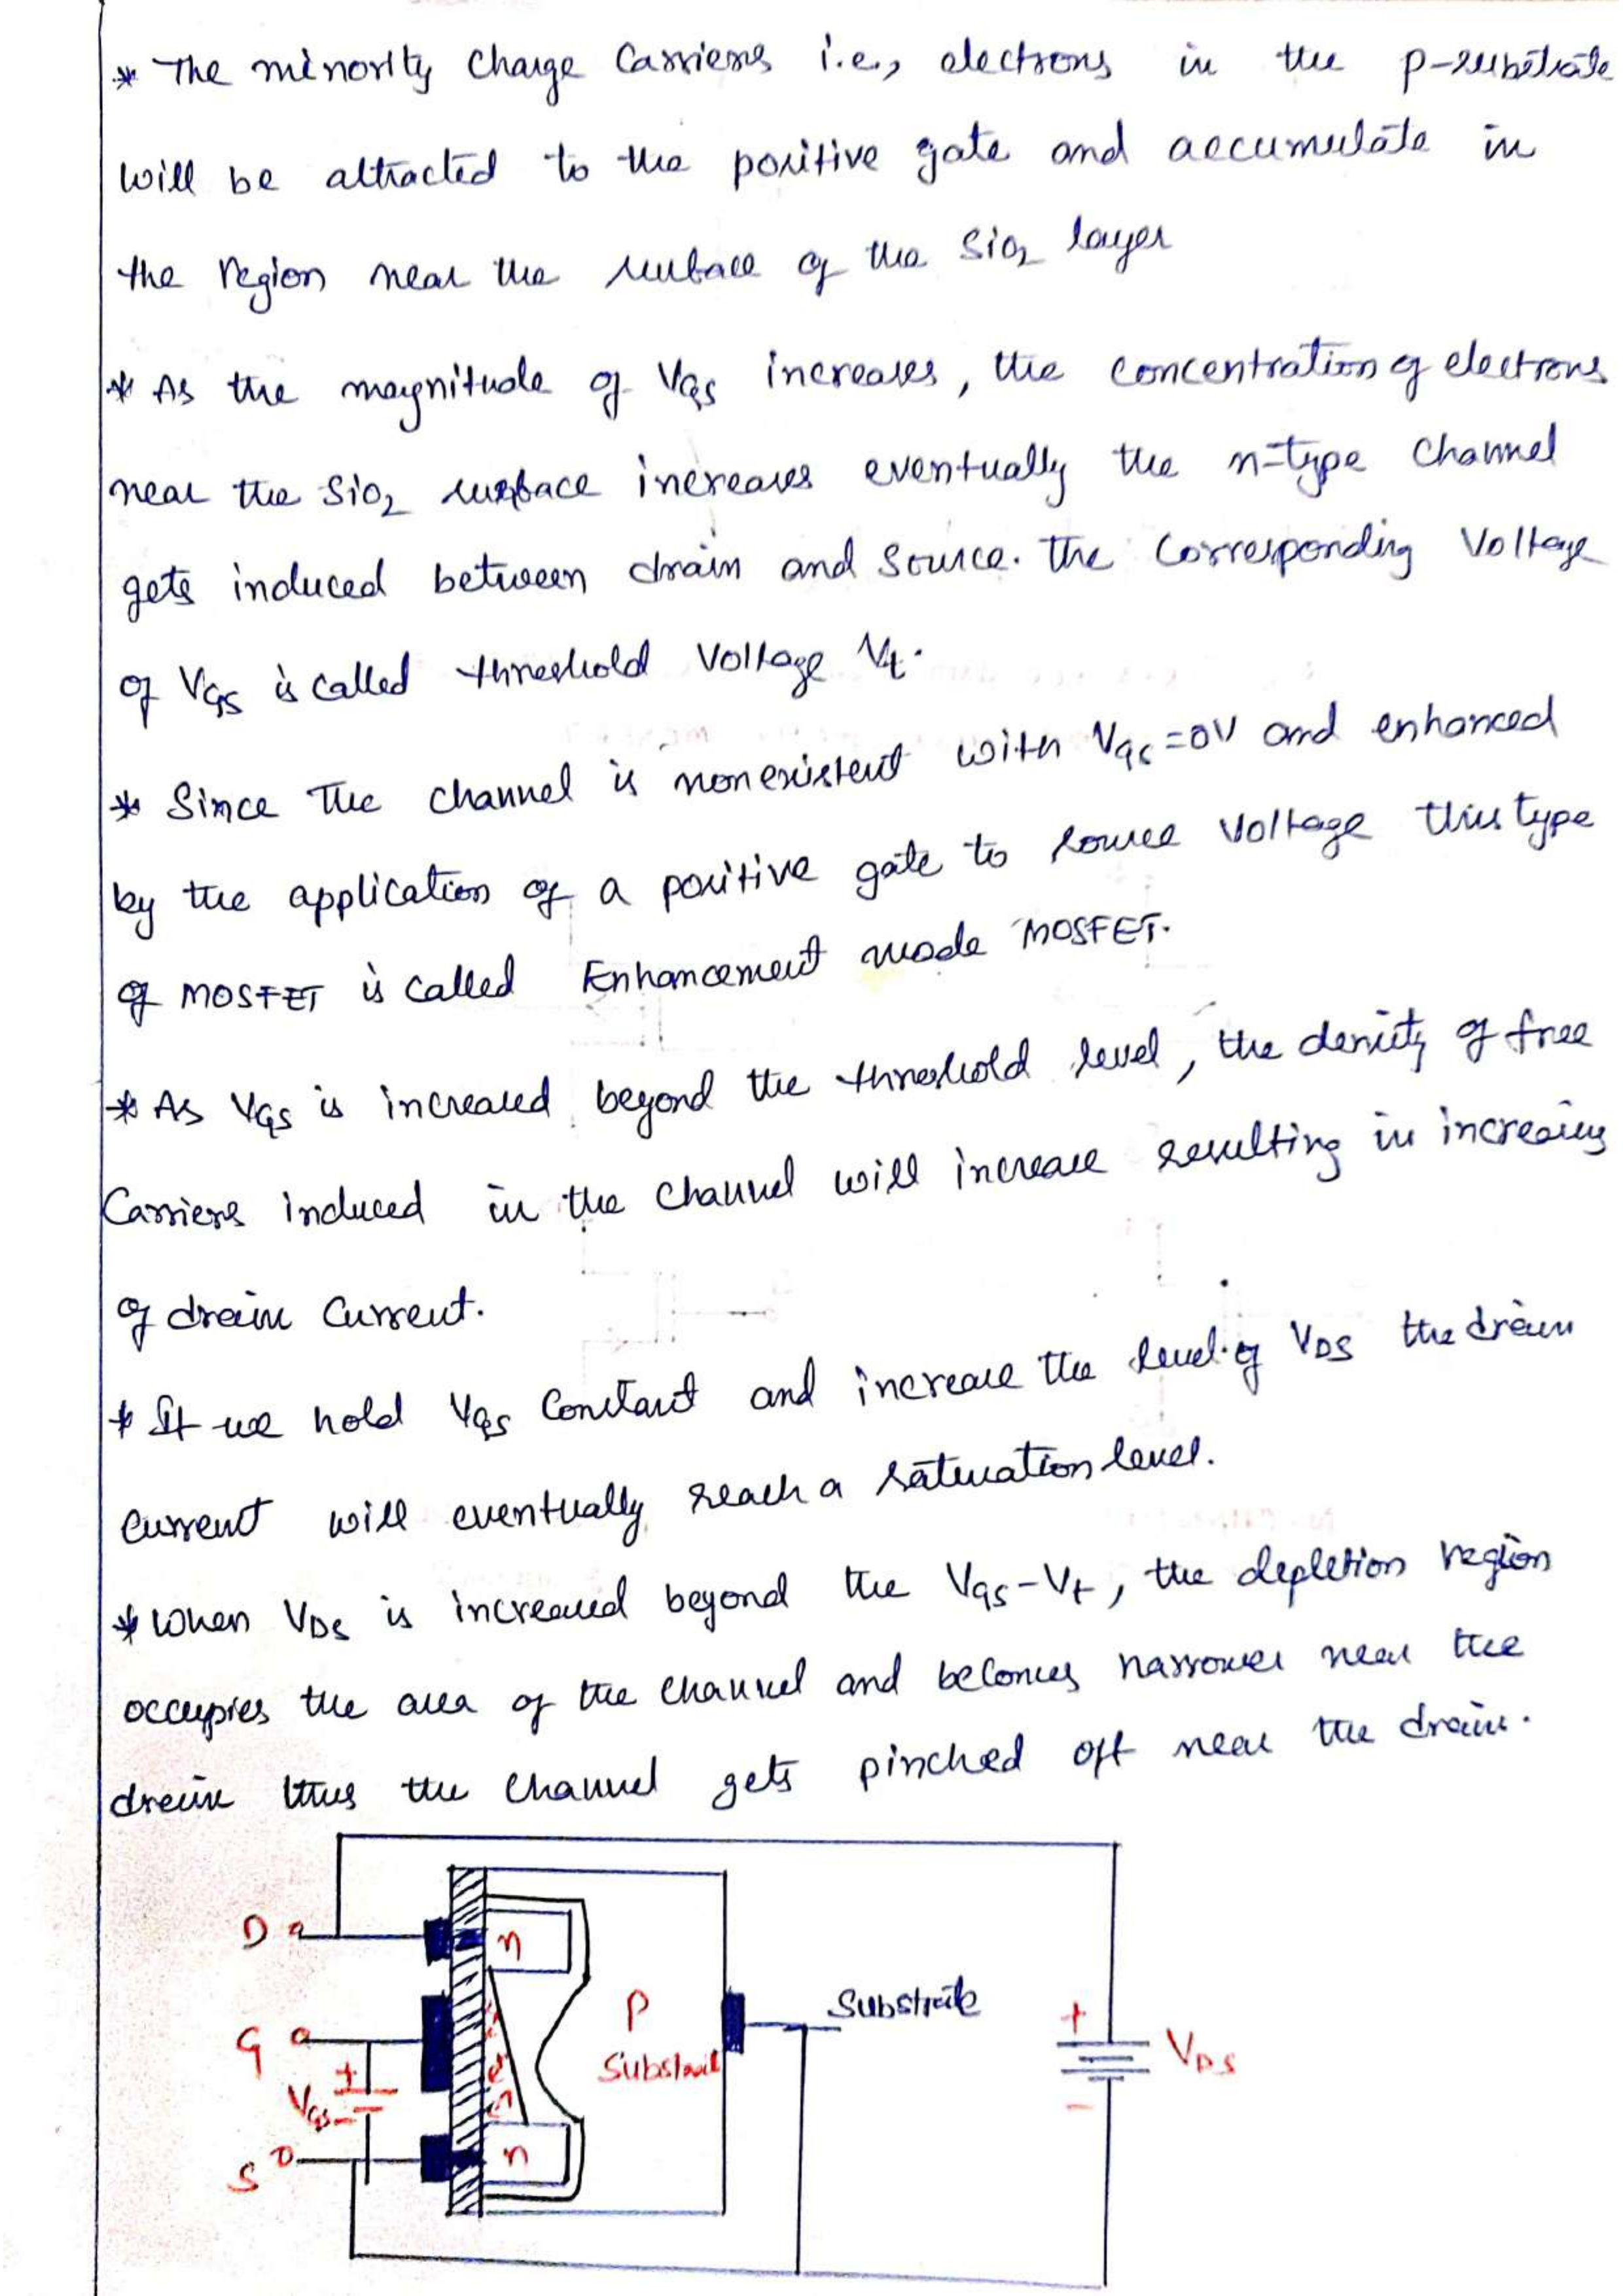 * The minority charge carriers i.e., electrons in the p-substrate
will be attracted to the positive gate and accumulate in
the region near the surface of the SiO2 layer
* As the magnitude of VGS increases, the concentration of electrons
near the SiO2 surface increases eventually the n-type channel
gets induced between drain and source. The corresponding Voltage
of VGS is called threshold Voltage Vt.
* Since The channel is nonexistent with VGS=0V and enhanced
by the application of a positive gate to source voltage this type
of MOSFET is called Enhancement mode MOSFET.
* As VGS is increased beyond the threshold level, the density of free
Carriers induced in the channel will increase resulting in increasing
of drain current.
* If we hold VGS constant and increase the level of VDS the drain
current will eventually reach a saturation level.
* When VDS is increased beyond the VGS-Vt, the depletion region
occupies the area of the channel and becomes narrower near the
drain thus the channel gets pinched off near the drain.
D
n
G
+
VGS
-
e
P
Substrate
Substrate
+
VDS
-
S
n